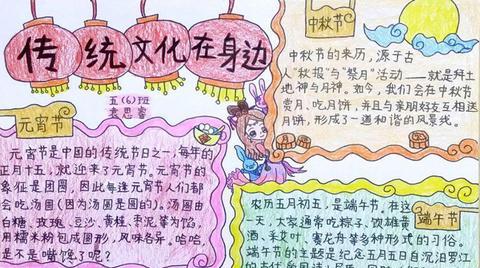 传统文化在身边
五(6)班
袁思睿
元宵节
元宵节是中国的传统节日之一,每年的
正月十五,就迎来了元宵节。元宵节的
象征是团圆,因此每逢元宵节人们都
会吃汤圆(因为汤圆是圆的)。汤圆由
白糖、玫瑰、豆沙、黄桂、枣泥等为馅,
用糯米粉包成圆形,风味各异,哈哈,
是不是嘴馋了呢?
中秋节
中秋节的来历,源于古
人"秋报"与"祭月"活动——就是拜土
地神与月神。如今,我们会在中秋节
赏月、吃月饼,并且与亲朋好友互相送
月饼,形成了一道和谐的风景线。
端午节
农历五月初五,是端午节。在这
一天,大家通常吃粽子、饮雄黄
酒、采艾叶、赛龙舟等多种形式的习俗。
端午节的主题是纪念五月五日自沉汨罗江